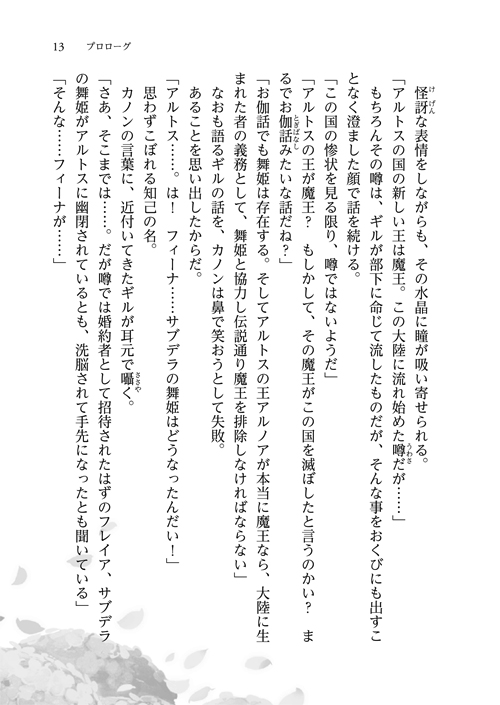 13　プロローグ
　怪訝な表情をしながらも、その水晶に瞳が吸い寄せられる。
「アルトスの国の新しい王は魔王。この大陸に流れ始めた噂だが……」
　もちろんその噂は、ギルが部下に命じて流したものだが、そんな事をおくびにも出すこ
となく澄ました顔で話を続ける。
「この国の惨状を見る限り、噂ではないようだ」
「アルトスの王が魔王？　もしかして、その魔王がこの国を滅ぼしたと言うのかい？　ま
るでお伽話みたいな話だね？」
「お伽話でも舞姫は存在する。そしてアルトスの王アルノアが本当に魔王なら、大陸に生
まれた者の義務として、舞姫と協力し伝説通り魔王を排除しなければならない」
　なおも語るギルの話を、カノンは鼻で笑おうとして失敗。
　あることを思い出したからだ。
「アルトス……。は！　フィーナ……サブデラの舞姫はどうなったんだい！」
　思わずこぼれる知己の名。
　カノンの言葉に、近付いてきたギルが耳元で囁く。
「さあ、そこまでは……。だが噂では婚約者として招待されたはずのフレイア、サブデラ
の舞姫がアルトスに幽閉されているとも、洗脳されて手先になったとも聞いている」
「そんな……フィーナが……」